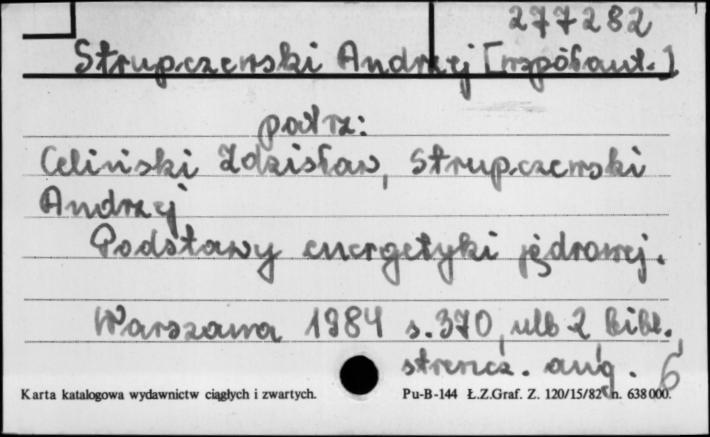 277282
Strupczewski Andrzej [współaut.]
patrz:
Celiński Zdzisław, Strupczewski
Andrzej
Podstawy energetyki jądrowej.
Warszawa 1984 s. 370, ulb 2 bibl.,
streszcz. ang. 6
Karta katalogowa wydawnictw ciągłych i zwartych. Pu-B-144 Ł.Z.Graf. Z. 120/15/82 n. 638000.